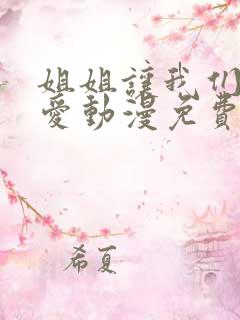 姐姐讓我们
愛動漫免費
希夏